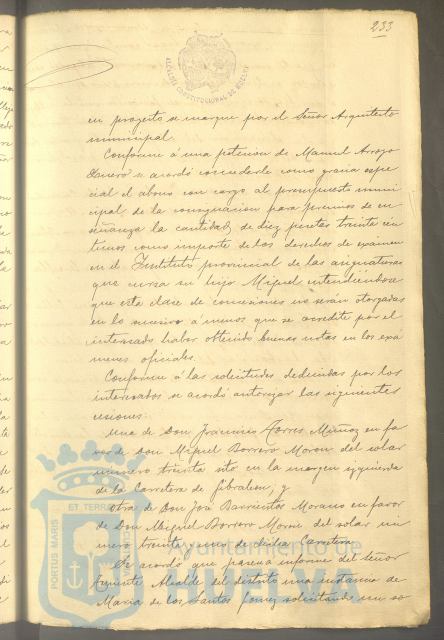 233
ALCALDIA CONSTITUCIONAL DE HUELVA
en proyecto se marque por el Señor Arquitecto
municipal.
Conforme á una peticion de Manuel Arroyo
se acordó concederle como gracia espe
cial el abono con cargo al presupuesto muni
cipal, de la consignacion para premios de en
señanza la cantidad de diez pesetas treinta cén
timos como importe de los derechos de examen
en el Instituto provincial de las asignaturas
que cursa su hijo Miguel entendiéndose
que esta clase de concesiones no serán otorgadas
en lo sucesivo á menos que se acredite por el
interesado haber obtenido buenas notas en los exá
menes oficiales.
Conforme á las solicitudes deducidas por los
interesados se acordó autorizar las siguientes
cesiones:
Una de Don Francisco Torres Muñoz en fa
vor de Don Miguel Borrero Moron del solar
número treinta sito en la margen izquierda
de la Carretera de Gibraleon; y
Otra de Don José Barrientos Morano en favor
de Don Miguel Borrero Moron del solar nú
mero treinta y uno de dicha Carretera.
Se acordó que pasara á informe del Señor
Teniente Alcalde del distrito una instancia de
Maria de los Santos solicitando un so
PORTUS MARIS ET TERRAE CUSTODIA
Ayuntamiento de
HUELVA